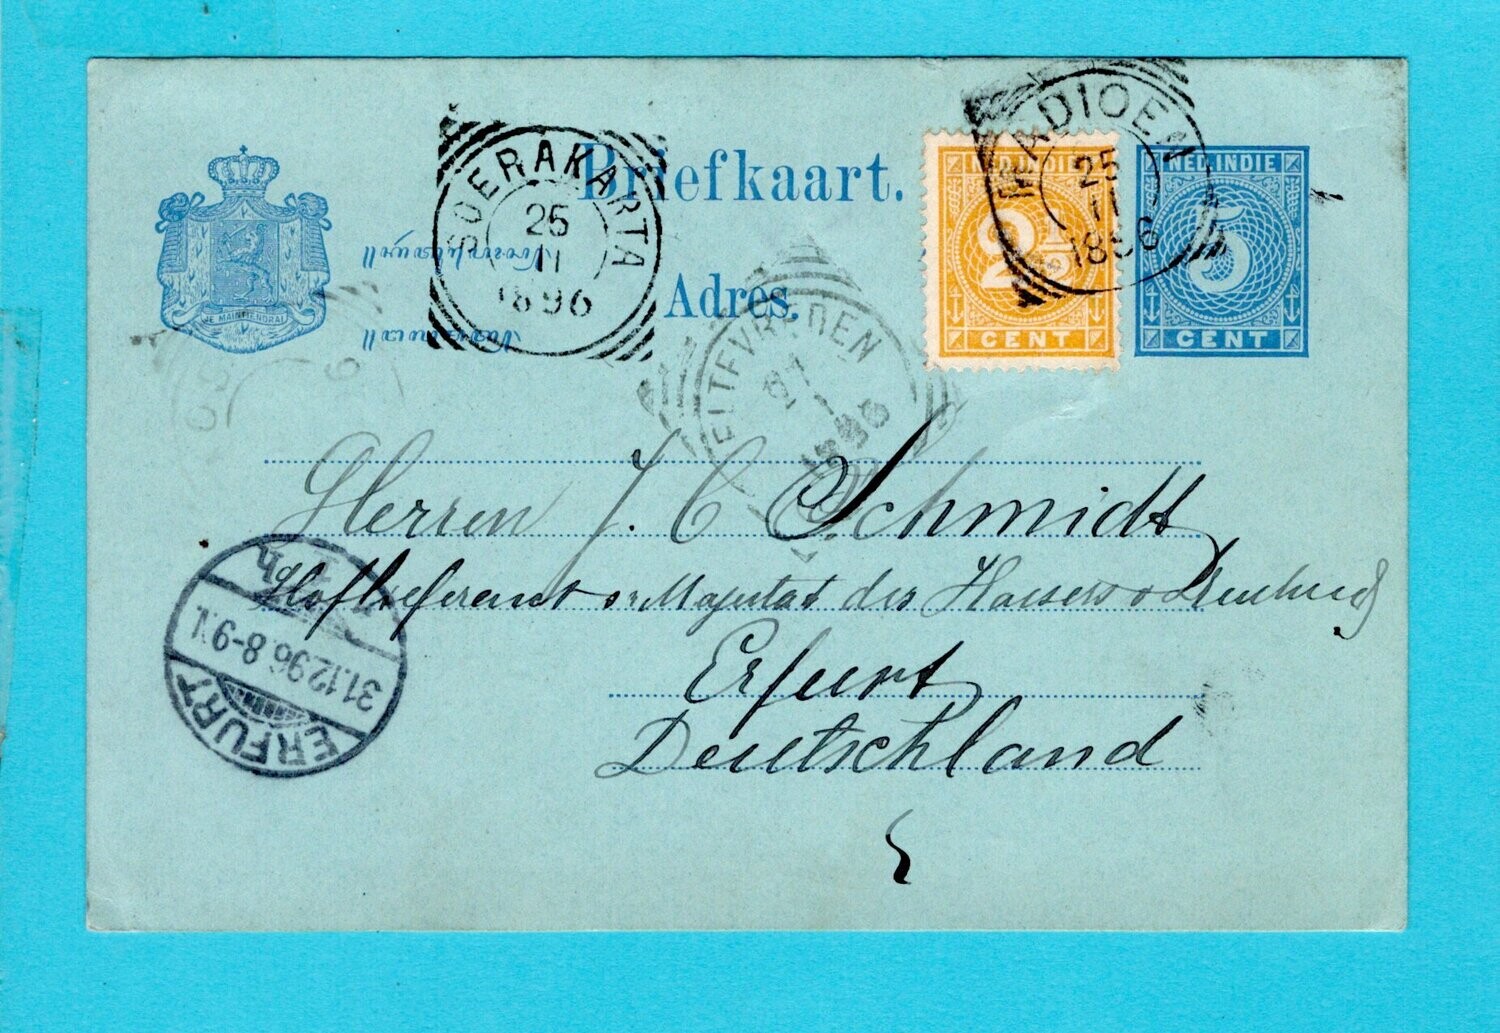 Briefkaart.
Adres.
JE MAINTIENDRAI
SOERAKARTA
25
11
1896
MADIOEN
25
11
1896
NED. INDIE
2½
CENT
NED. INDIE
5
CENT
ELTEVREDEN
Herren J. C. Schmidt
Majestat des Kaisers v
Erfurt
Deutschland
ERFURT
31.12.96.8-9V.